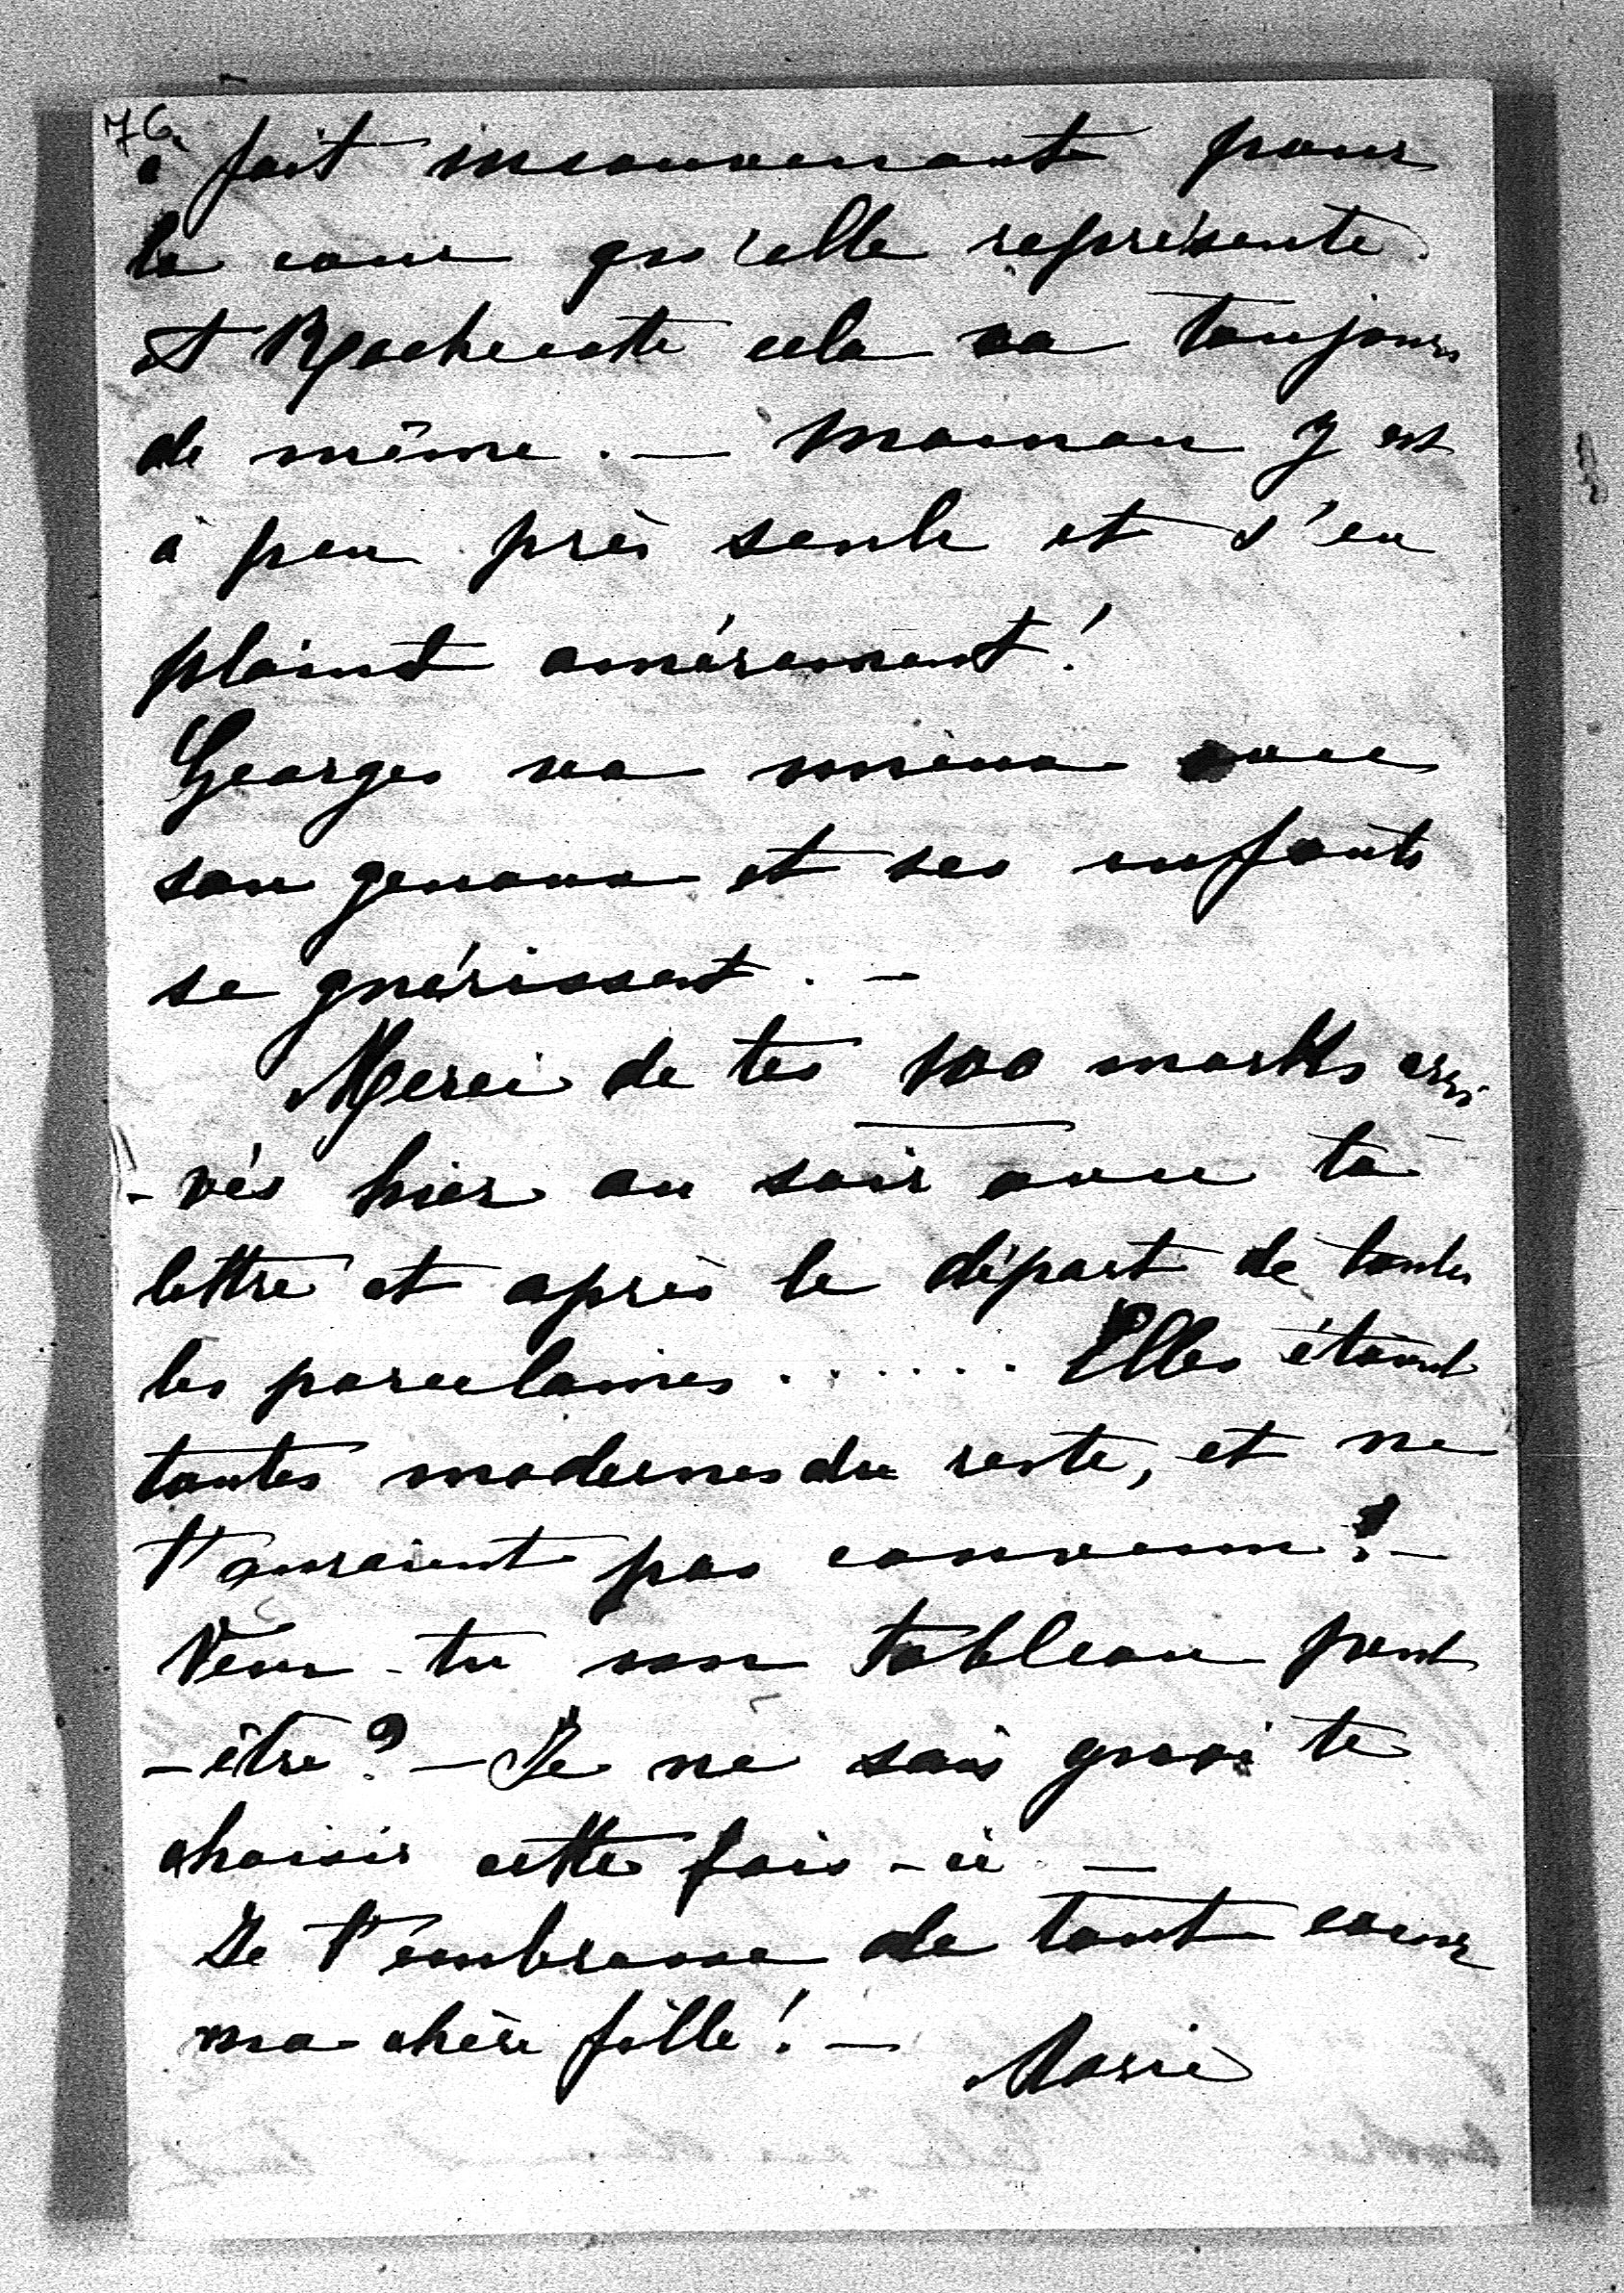 76.
à fait inconvenante pour
la cour qu'elle représente.
A Rochecotte cela va toujours
de même. — Maman y est
à peu près seule et s'en
plaint amèrement!
Georges va mieux avec
son genoux et ses enfants
se guérissent. —
Merci de tes 100 marks arri
- vés hier au soir avec ta
lettre et après le départ de toutes
les porcelaines....... Elles étaient
toutes modernes du reste, et ne
t'auraient pas convenu! —
Veux-tu son tableau peut
- être? — Je ne sais quoi te
choisir cette fois-ci —
Je t'embrasse de tout coeur
ma chère fille! — Marie